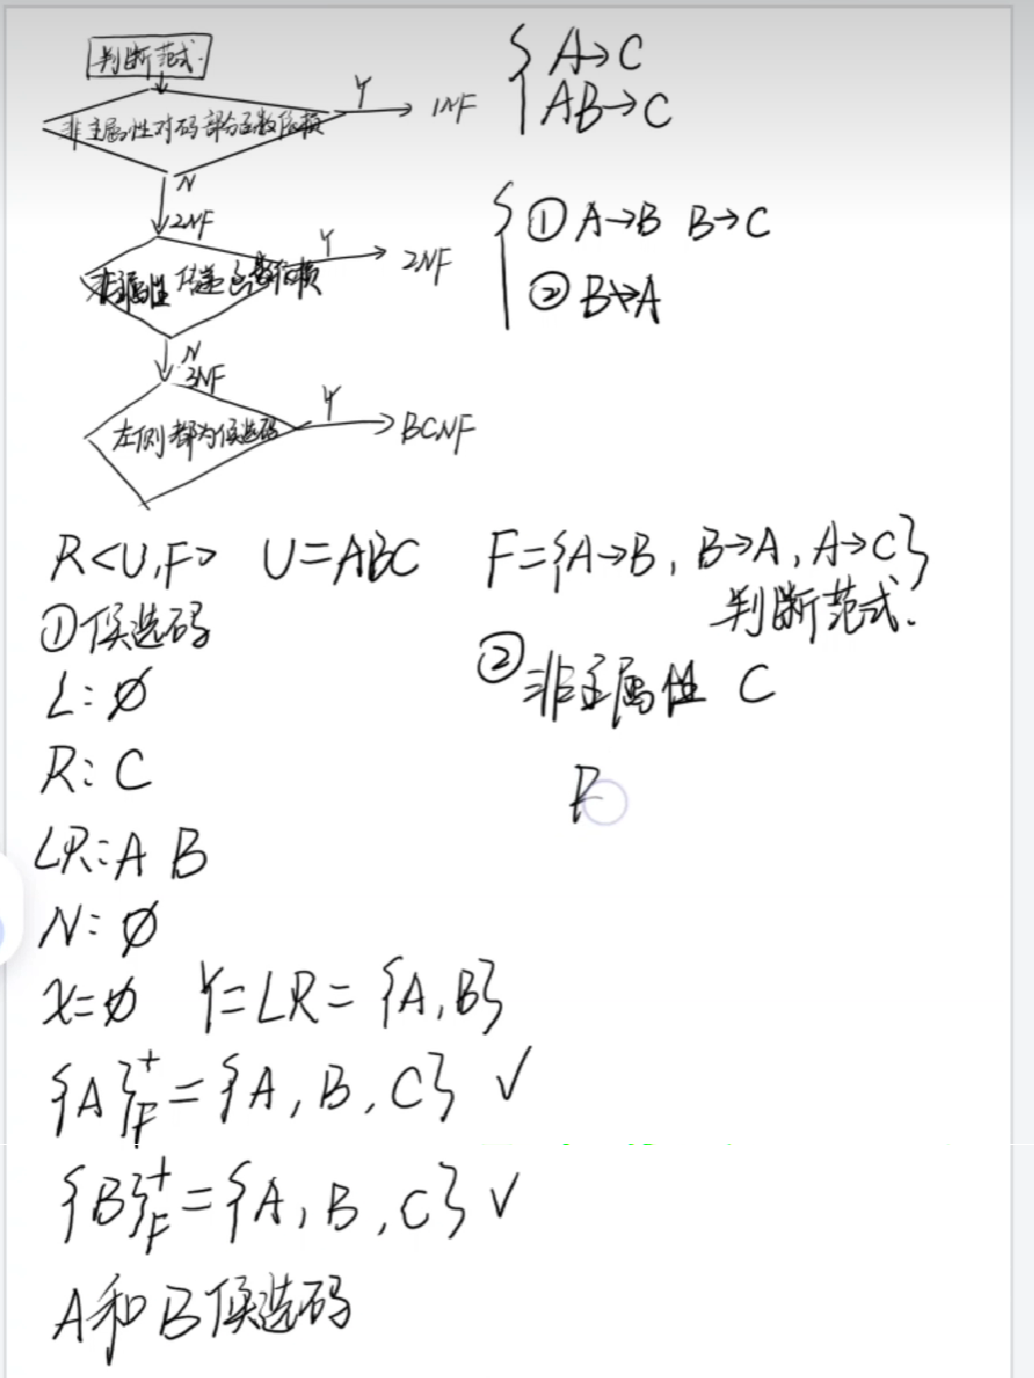 判断范式.
非主属性对码部分函数依赖
Y
1NF
N
2NF
非主属性 传递函数依赖
Y
2NF
N
3NF
左侧都为候选码
Y
BCNF
A→C
AB→C
①A→B B→C
②B↛A
R<U,F> U=ABC F={A→B, B→A, A→C}
判断范式.
①候选码
L:∅
R:C
LR:A B
N:∅
X=∅ Y=LR={A,B}
{A}⁺F={A,B,C}✓
{B}⁺F={A,B,C}✓
A和B候选码
②非主属性 C